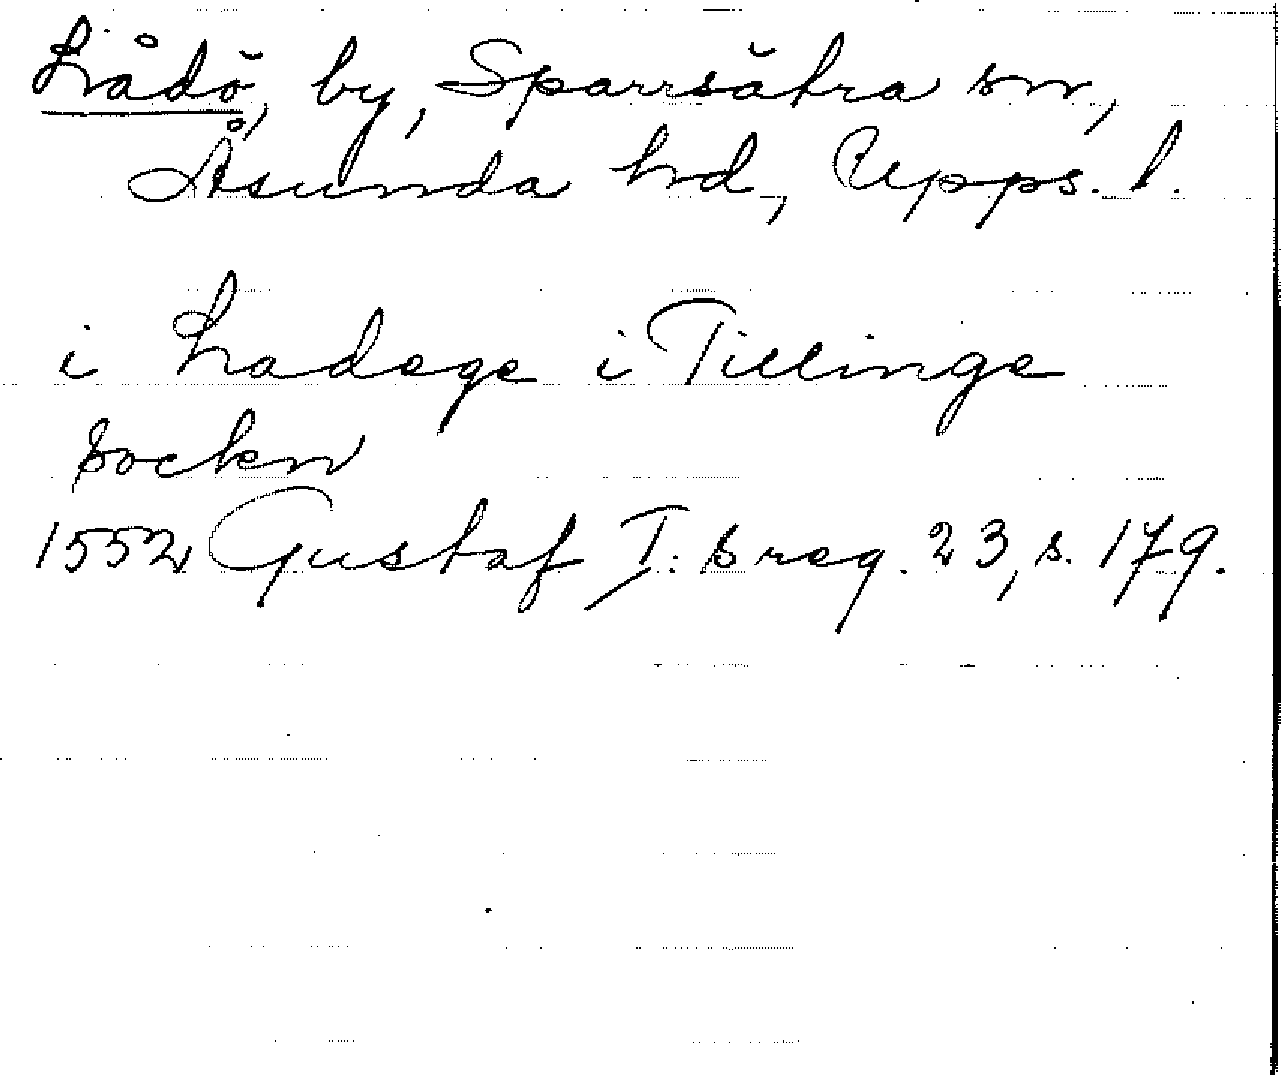 Lådö, by, Sparrsätra sn,
Åsunda hd, Upps. l.
i Ladege i Tillinge
sockn
1552 Gustaf I:s reg. 23, s. 179.